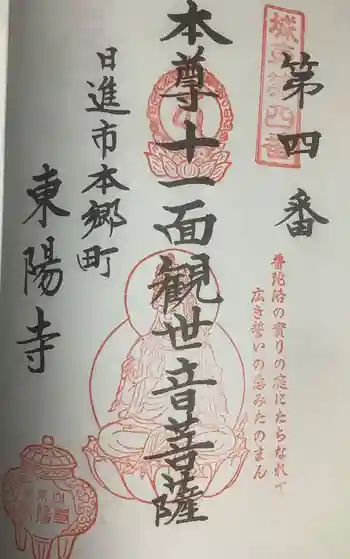 城東第四番
第四番
普陀洛の実りの庭にたちなれて
広き誓いの恵みたのまん
本尊十一面観世音菩薩
日進市本郷町
東陽寺